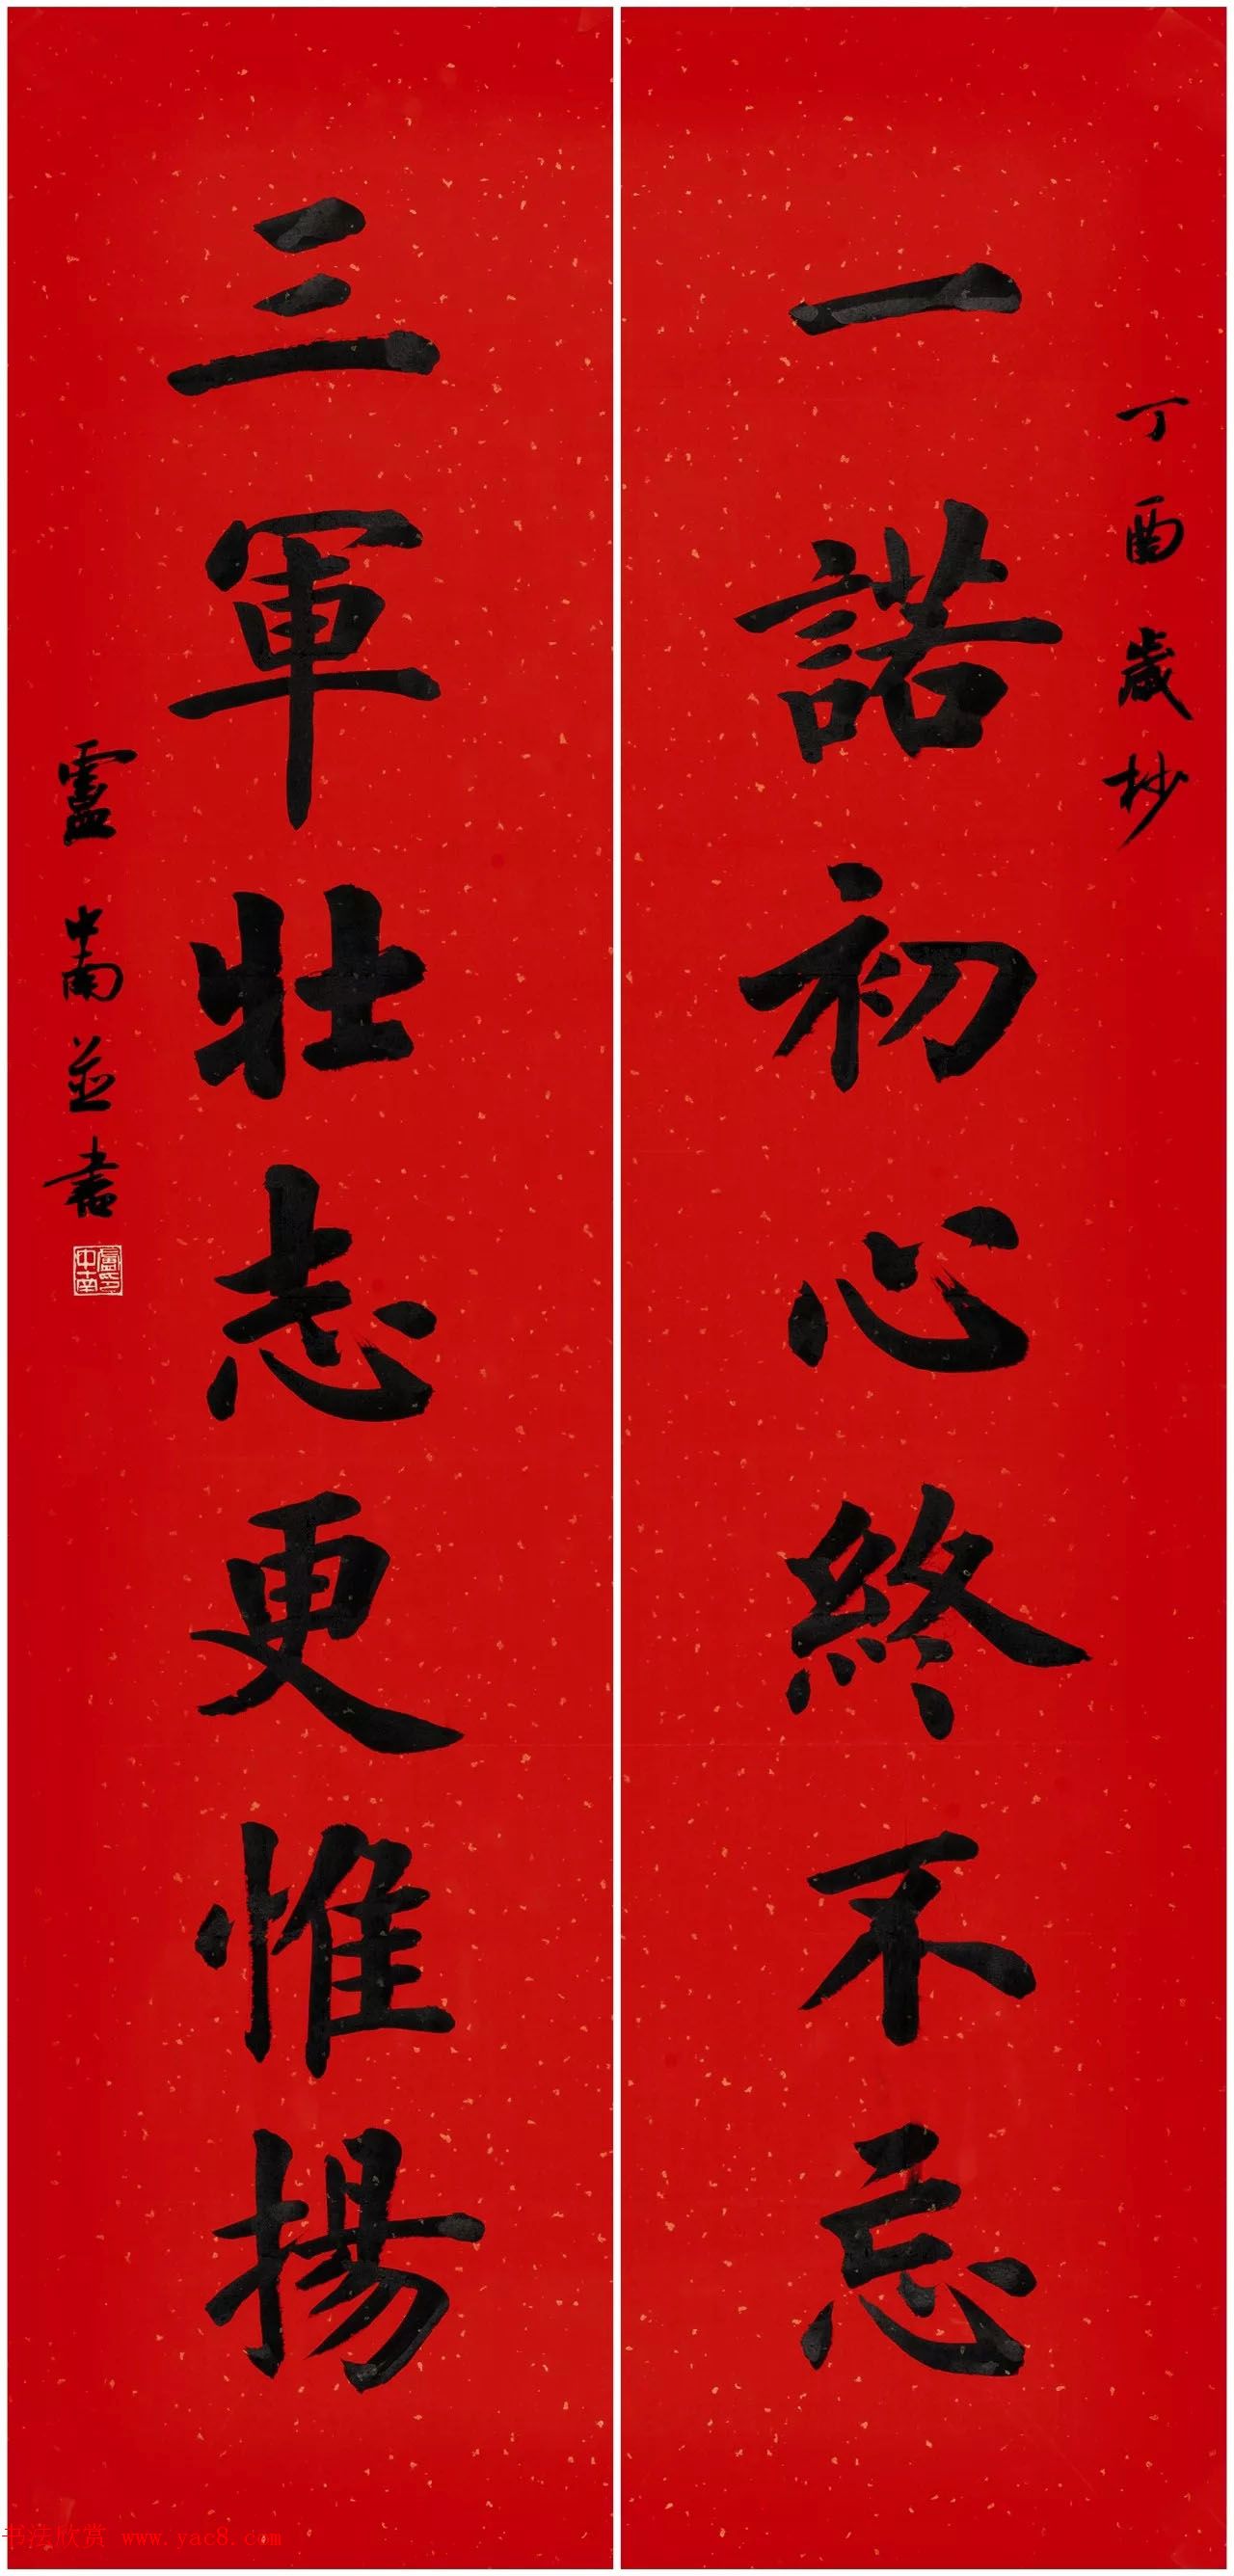 丁酉歲杪
一諾初心終不忘
三軍壯志更惟揚
盧中南並書
盧中南印
书法欣赏 www.yac8.com